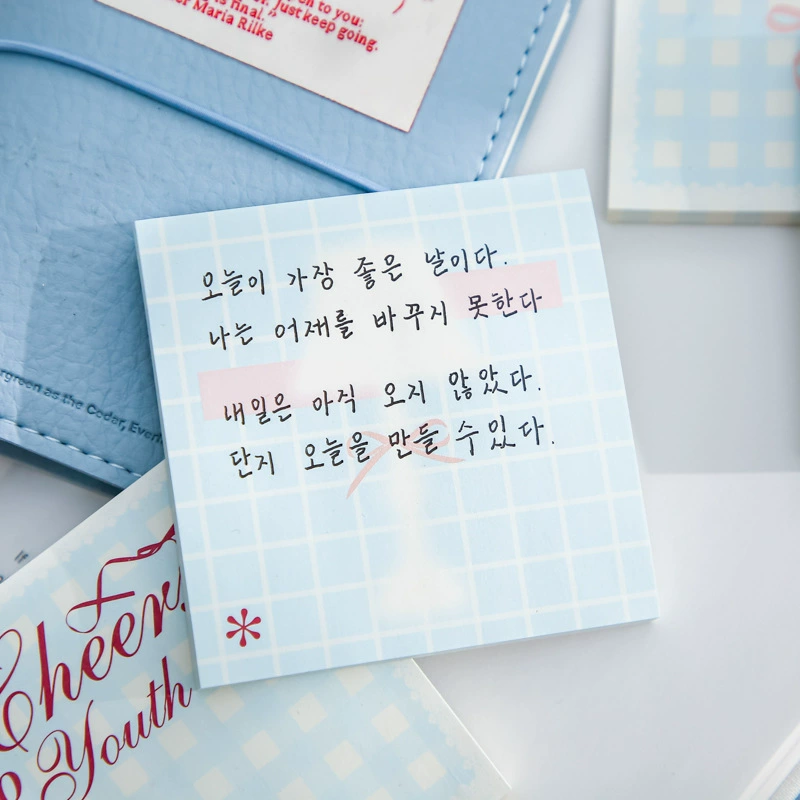 on to you:
Just keep going.
is final."
er Maria Rilke
오늘이 가장 좋은 날이다.
나는 어제를 바꾸지 못한다
내일은 아직 오지 않았다.
단지 오늘을 만들 수 있다.
rgreen as the Cedar, Ever
If
Cheer,
& Youth